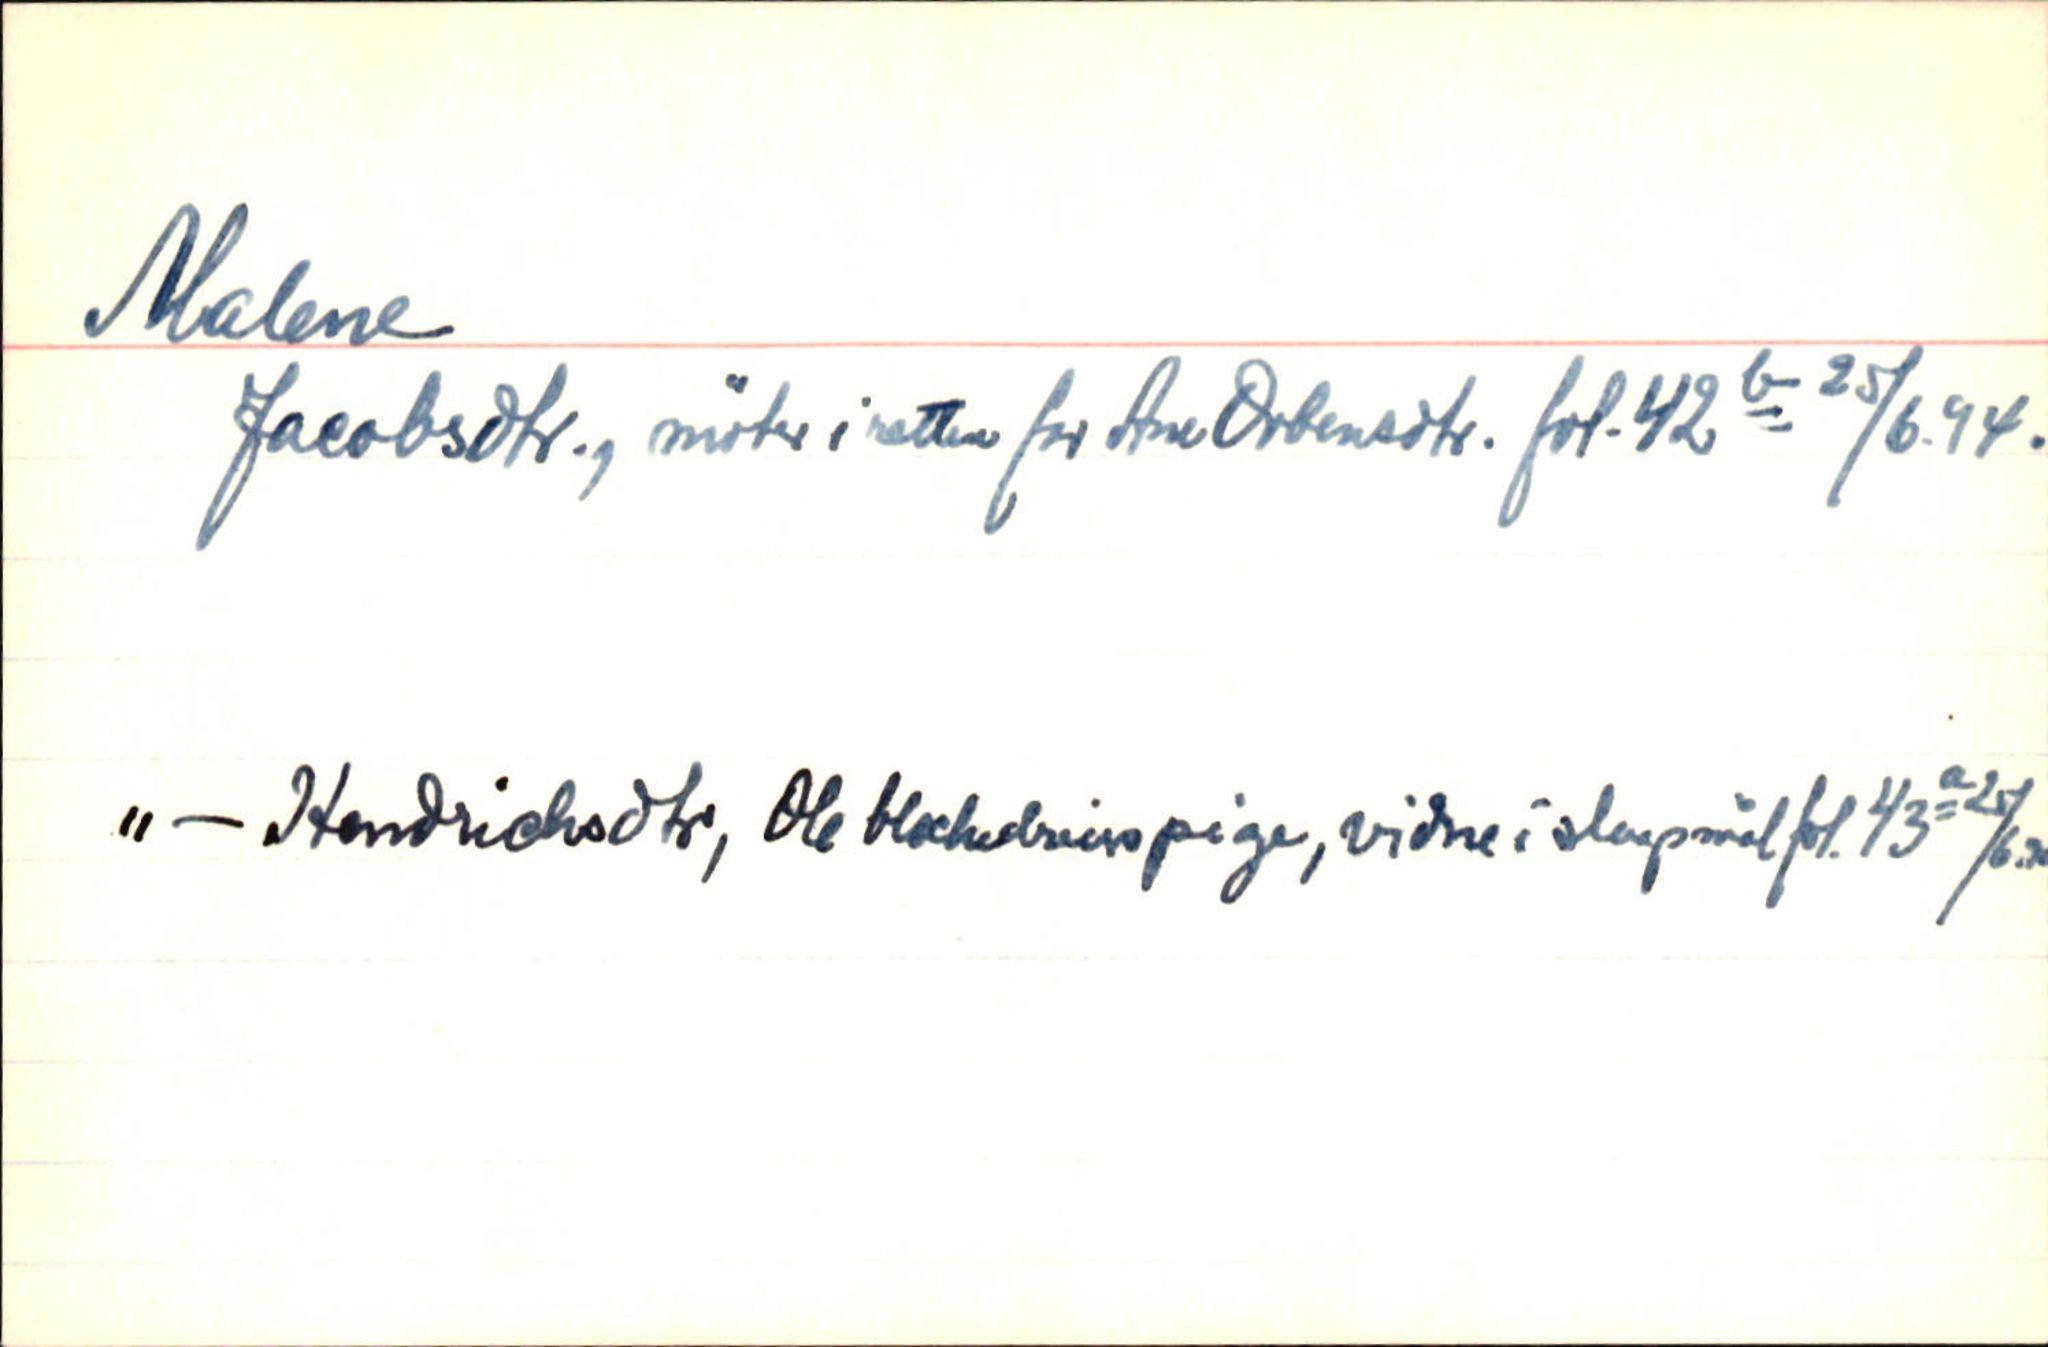 Malene
Jacobsdtr., möter i retten for Ane Orbensdtr. fol. 42 b 25/6.94.
"— Hendrichsdtr, Ole pige, vidne i slagsmål fol. 43 a 25/6.